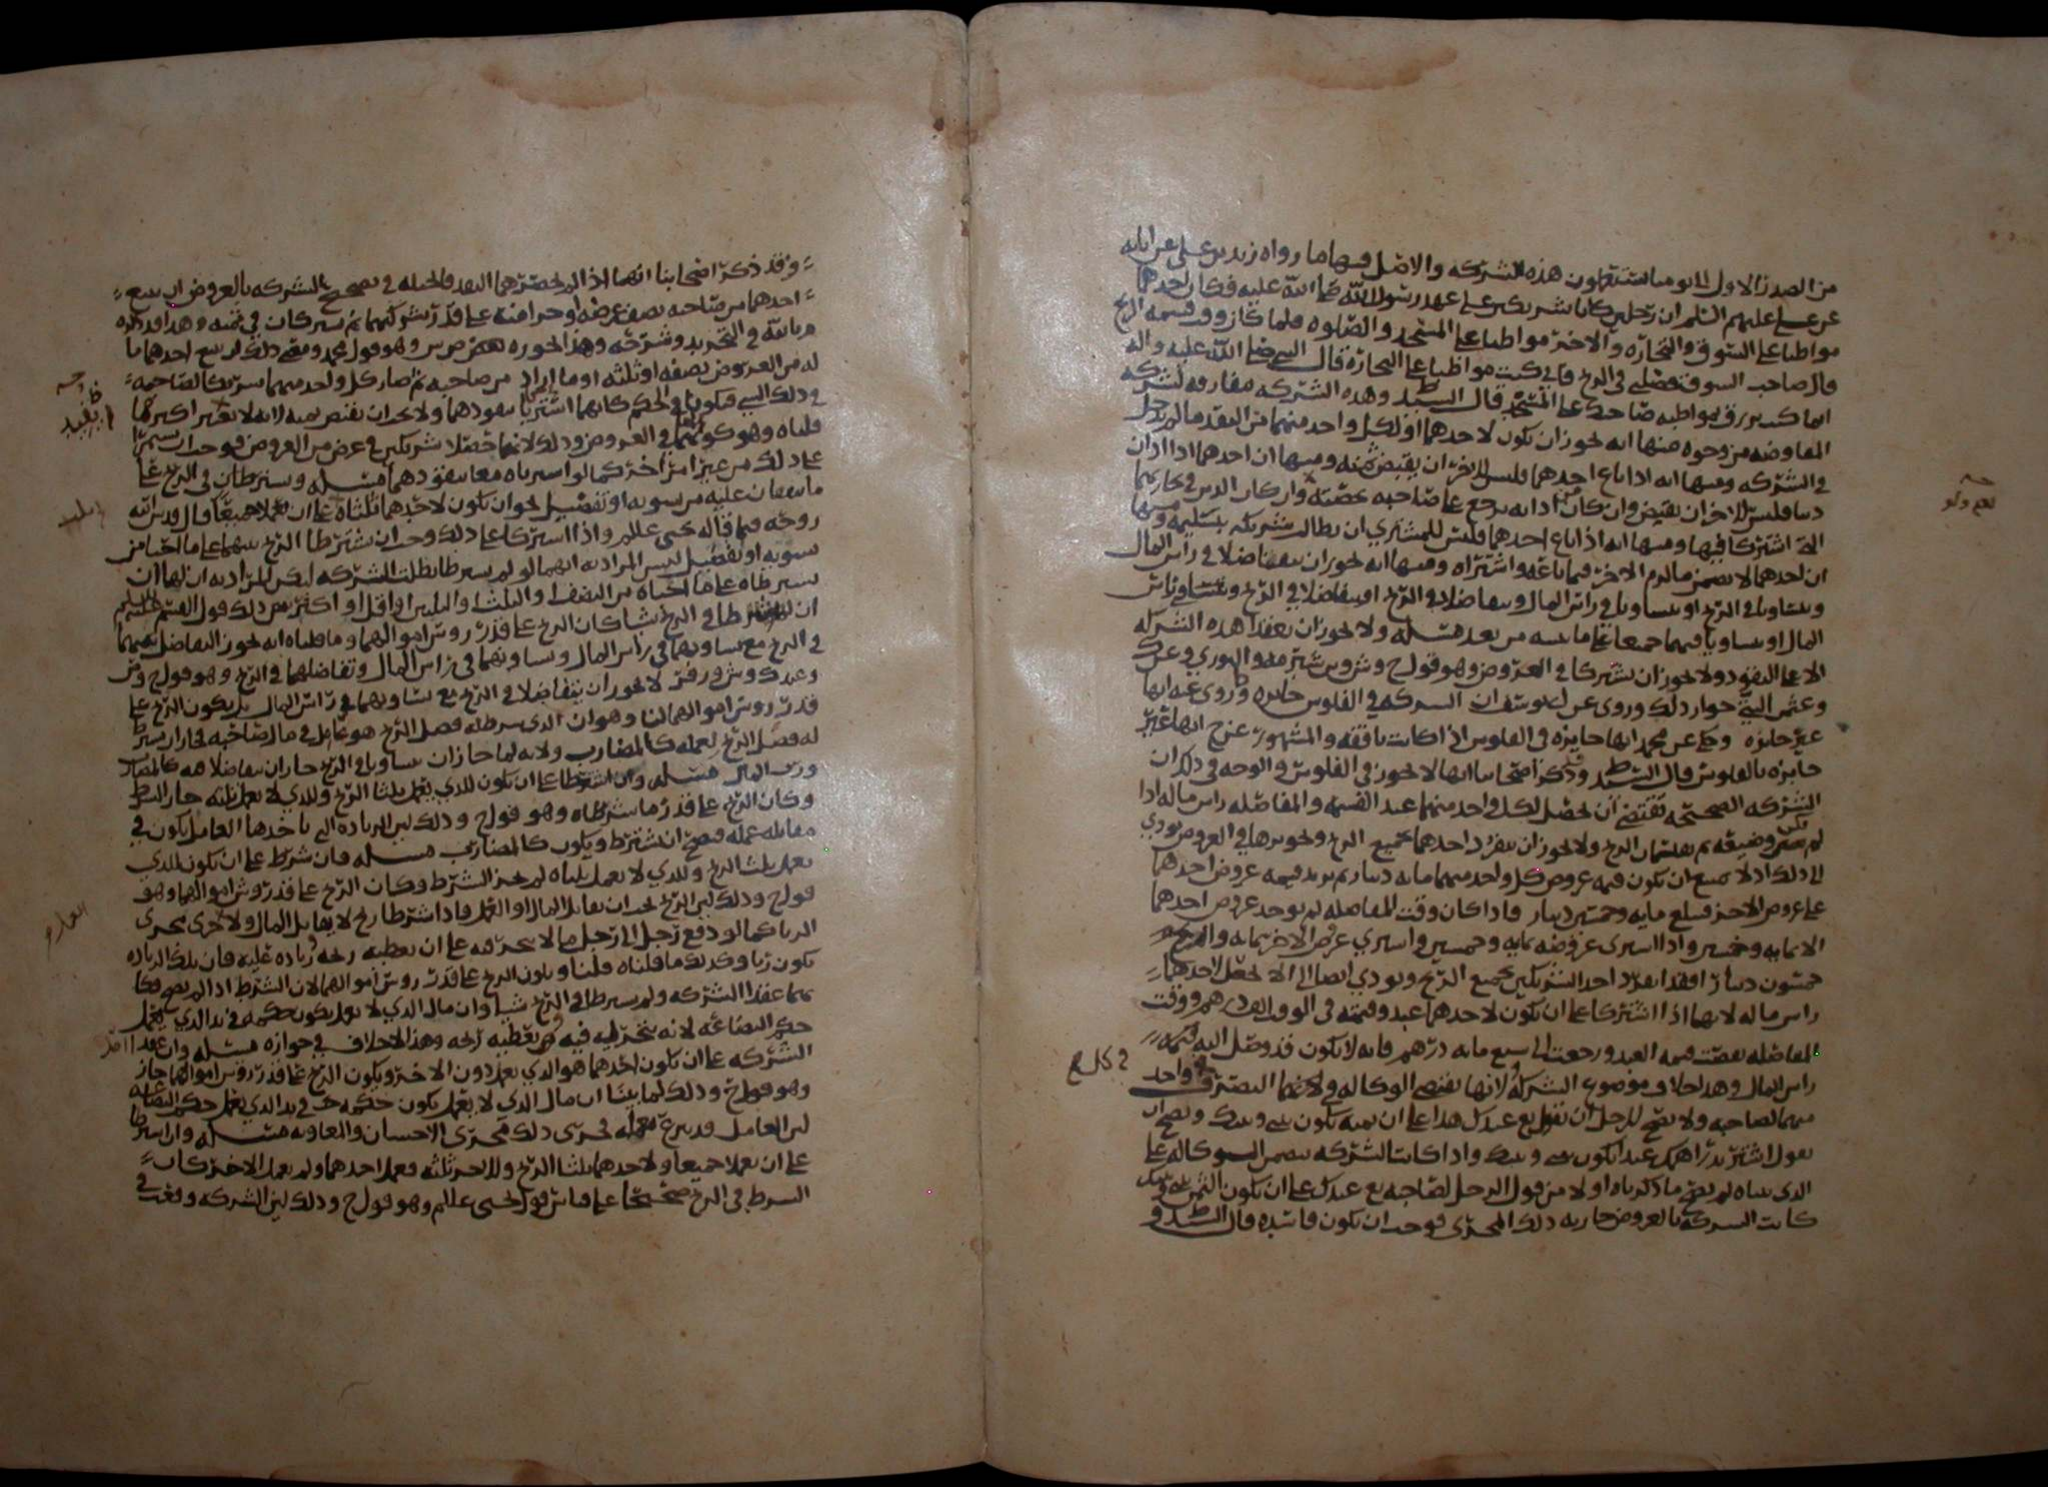 من الصدر الاول الى يومنا يستعملون هذه الشركه والاصل فيها ما رواه زيد بن علي عن ابايه
عن علي عليهم السلم ان رجلين كانا شريكين على عهد رسول الله صلى الله عليه فكان احدهما
مواظبا على السوق والتجاره والاخر مواظبا على المسجد والصلوه فلما كان وقت قسمه الربح
قال صاحب السوق فضلني في الربح فاني كنت مواظبا على التجاره قال النبي صلى الله عليه واله
انما كنت ترزق بمواظبه صاحبك على المسجد قال السيد ط وهذه الشركه مفارقه لشركه
المفاوضه من وجوه منها انه يجوز ان يكون لاحدهما او لكل واحد منهما من النقد ما لم يدخل
في الشركه ومنها انه اذا باع احدهما فليس للاخر ان يقبض ثمنه ومنها ان احدهما اذا ادان
دينا فليس للاخر ان يقبض وان كان اداه يرجع على صاحبه بحصته وان كان الدين في تجارتهما
التي اشتركا فيها ومنها انه اذا باع احدهما فليس للمشتري ان يطالب شريكه بتسليمه ومنها
ان احدهما لا يضمن ما لزم الاخر فيما باعه واشتراه ومنها انه يجوز ان يتفاضلا في راس المال
ويتساويا في الربح او يتساويا في راس المال ويتفاضلا في الربح او يتفاضلا في الربح ويتساويا في راس
المال او يتساويا فيهما جميعا على ما نبينه من بعد مسله ولا يجوز ان يعقدا هذه الشركه
الا على النقود ولا يجوز ان يشتركا في العروض وهو قول ح وش وس شبرمه والثوري وعن ك
وعثمن البتي جواز ذلك وروي عن ابي يوسف ان الشركه في الفلوس جايزه وروي عنه انها
غير جايزه وحكي عن محمد انها جايزه في الفلوس اذا كانت نافقه والمشهور عن ح انها غير
جايزه بالفلوس قال السيد ط وذكر اصحابنا انها لا تجوز في الفلوس والوجه في ذلك ان
الشركه الصحيحه تقتضي ان يحصل لكل واحد منهما عند القسمه والمفاصله راس ماله اذا
لم تكن وضيعه ثم يقتسمان الربح ولا يجوز ان ينفرد احدهما بجميع الربح وتجويزها في العروض يودي
الى ذلك اذ لا يمتنع ان تكون قيمه عروض كل واحد منهما مايه دينار ثم تزيد قيمه عروض احدهما
على عروض الاخر فتبلغ مايه وخمسين دينار فاذا كان وقت المفاصله لم يوجد عروض احدهما
الا بمايه وخمسين واذا اشترى عروضه بمايه وخمسين واشترى عروض الاخر بمايه والربح
خمسون دينارا فقد انفرد احد الشريكين بجميع الربح ويودي ايضا الى الا يحصل لاحدهما
راس ماله لانهما اذا اشتركا على ان يكون لاحدهما عبد وقيمته في الوقت الف درهم ووقت
المفاصله نقصت قيمه العبد ورجعت الى سبع مايه درهم فانه لا يكون قد وصل اليه قيمه
راس المال وهذا خلاف موضوع الشركه ولانها تقتضي الوكاله في التصرف كل واحد
منهما لصاحبه ولا يصح للرجل ان يقول بع عبدك هذا على ان ثمنه يكون بيني وبينك ويصح ان
يقول اشتر بدراهمك عبدا يكون بيني وبينك واذا كانت الشركه تتضمن الوكاله على
الذي بيناه لم يصح ما ذكرناه اولا من قول الرجل لصاحبه بع عبدك على ان يكون الثمن بيني وبينك
كانت الشركه بالعروض جاريه ذلك المجرى فوجب ان تكون فاسده قال السيد ط و
وقد ذكر اصحابنا انهما اذا لم يحضرهما النقد فالحيله في تصحيح الشركه بالعروض ان يبيع
احدهما من صاحبه نصف عرضه او جزا منه على قدر شركتهما ثم يشتركان في ثمنه وهذا قد ذكره
م بالله في التجريد وشرحه وهذا نحوره بعض س وهو قول محمد ومعنى ذلك ان يبيع احدهما ما
له من العروض بنصفه او ثلثه او ما اراد من صاحبه ثم صار كل واحد منهما شريكا لصاحبه
في ذلك الشي فيكونا في الحكم كانهما اشتريا بنقودهما ولا يجب ان يقتص ثمنه لانه لا تغيير اكثر مما
قلناه وهو كونهما في العروض وذلك لانهما حصلا شريكين في عرض من العروض فوجب ان يستمرا
على ذلك من غير امر اخر كما لو اشترياه معا بنقودهما مسله ويشترطان في الربح على
ما يتفقان عليه من تسويه او تفضيل نحو ان يكون لاحدهما ثلثاه على ان يعملا جميعا قال قدس الله
روحه فيما قاله يحيى عليلم واذا اشتركا على ذلك وجب ان يشترطا الربح بينهما على ما احبا من
تسويه او تفضيل ليس المراد به انهما لو لم يشترطا بطلت الشركه لكن المراد به ان لهما ان
يشترطاه على ما احباه من النصف والثلث والثلثين او اقل او اكثر من ذلك قول القسم عليه السلم
ان لم يشترطا في الربح شيا كان الربح على قدر روس اموالهما وما قلناه انه يجوز التفاضل بينهما
في الربح مع تساويهما في راس المال وتساويهما في راس المال وتفاضلهما في الربح وهو قول ح وص
وعند ك وش وزفر لا يجوز ان يتفاضلا في الربح مع تساويهما في راس المال بل يكون الربح على
قدر روس اموالهما لنا وهو ان الذي شرط له فضل الربح هو عامل في مال صاحبه فجاز ان يشرط
له فضل الربح لعمله كالمضارب ولانه لما جاز ان يتساويا في الربح جاز ان يتفاضلا فيه كالمضارب
ورب المال مسله وان اشترطا على ان يكون للذي يعمل ثلثا الربح وللذي لا يعمل ثلثه جاز الشرط
وكان الربح على قدر ما شرطاه وهو قول ح وذلك لان الزياده التي ياخذها العامل تكون في
مقابله عمله فصح ان تشترط ويكون كالمضارب مسله فان شرط على ان يكون للذي
يعمل ثلث الربح وللذي لا يعمل ثلثاه لم يجز الشرط وكان الربح على قدر روس اموالهما وهو
قول ح وذلك لان الربح يجب ان يقابل المال او العمل فاذا اشترطا ربح لا يقابل المال ولا العمل جرى مجرى
الربا كما لو دفع رجل الى رجل مالا يتجر فيه على ان يعطيه ربحه وزياده عليه فان تلك الزياده
تكون ربا وكذلك ما قلناه قلنا ويكون الربح على قدر روس اموالهما لان الشرط اذا لم يصح فكا
نما عقدا الشركه ولم يشرطا في الربح شيا وان مال الذي لا يعمل يكون حكمه في يد الذي يعمل
حكم البضاعه لانه يتجر له فيه ثم يعطيه ربحه وهذا لا خلاف في جوازه مسله وان عقدا
الشركه على ان يكون احدهما هو الذي يعمل دون الاخر ويكون الربح على قدر روس اموالهما جاز
وهو قول ح وذلك لما بينا ان مال الذي لا يعمل يكون حكمه في يد الذي يعمل حكم البضاعه
لان العامل قد تبرع بعمله فجرى ذلك مجرى الاحسان والمعاونه مسله وان اشترطا
على ان يعملا جميعا ولاحدهما ثلثا الربح وللاخر ثلثه فعمل احدهما ولم يعمل الاخر كان
الشرط في الربح صحيحا على قياس قول يحيى عليلم وهو قول ح وذلك لان الشركه وقعت في